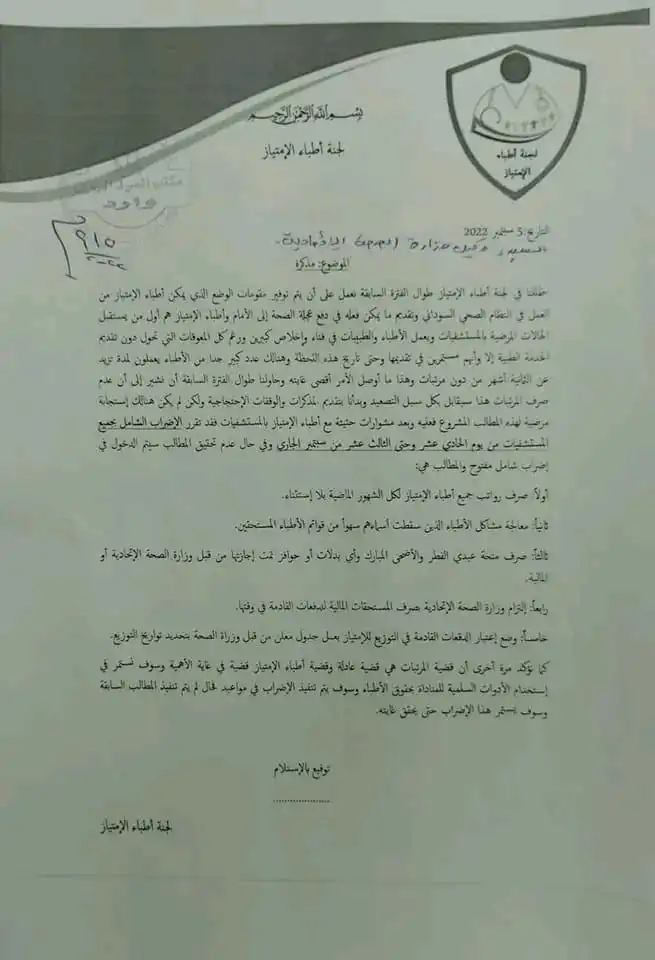 بسم الله الرحمن الرحيم
لجنة أطباء الإمتياز
لجنة أطباء
الإمتياز
وارد
٩/٥
التاريخ: 5 سبتمبر 2022
السيد/ وكيل وزارة الصحة الإتحادية.
الموضوع: مذكرة
ظللنا في لجنة أطباء الإمتياز طوال الفترة السابقة نعمل على أن يتم توفير مقومات الوضع الذي يمكن أطباء الإمتياز من
العمل في النظام الصحي السوداني وتقديم ما يمكن فعله في دفع عجلة الصحة إلى الأمام وأطباء الإمتياز هم أول من يستقبل
الحالات المرضية بالمستشفيات ويعمل الأطباء والطبيبات في فناء وإخلاص كبيرين ورغم كل المعوقات التي تحول دون تقديم
الخدمة الطبية إلا وأنهم مستمرين في تقديمها وحتى تاريخ هذه اللحظة وهنالك عدد كبير جدا من الأطباء يعملون لمدة تزيد
عن الثمانية أشهر من دون مرتبات وهذا ما أوصل الأمر أقصى غايته وحاولنا طوال الفترة السابقة أن نشير إلى أن عدم
صرف المرتبات هذا سيقابل بكل سبل التصعيد وبدأنا بتقديم المذكرات والوقفات الإحتجاجية ولكن لم يكن هنالك إستجابة
مرضية لهذه المطالب المشروع فعليه وبعد مشاورات حثيثة مع أطباء الإمتياز بالمستشفيات فقد تقرر الإضراب الشامل بجميع
المستشفيات من يوم الحادي عشر وحتى الثالث عشر من سبتمبر الجاري وفي حال عدم تحقيق المطالب سيتم الدخول في
إضراب شامل مفتوح والمطالب هي:
أولاً: صرف رواتب جميع أطباء الإمتياز لكل الشهور الماضية بلا إستثناء.
ثانياً: معالجة مشاكل الأطباء الذين سقطت أسماءهم سهواً من قوائم الأطباء المستحقين.
ثالثاً: صرف منحة عيدي الفطر والأضحى المبارك وأي بدلات أو حوافز تمت إجازتها من قبل وزارة الصحة الإتحادية أو
المالية.
رابعاً: إلتزام وزارة الصحة الإتحادية بصرف المستحقات المالية للدفعات القادمة في وقتها.
خامساً: وضع إعتبار الدفعات القادمة في التوزيع للإمتياز بعمل جدول معلن من قبل وزراة الصحة بتحديد تواريخ التوزيع.
كما نؤكد مرة أخرى أن قضية المرتبات هي قضية عادلة وقضية أطباء الإمتياز قضية في غاية الأهمية وسوف نستمر في
إستخدام الأدوات السلمية للمناداة بحقوق الأطباء وسوف يتم تنفيذ الإضراب في مواعيد لحال لم يتم تنفيذ المطالب السابقة
وسوف يستمر هذا الإضراب حتى يحقق غايته.
توقيع بالإستلام
....................
لجنة أطباء الإمتياز